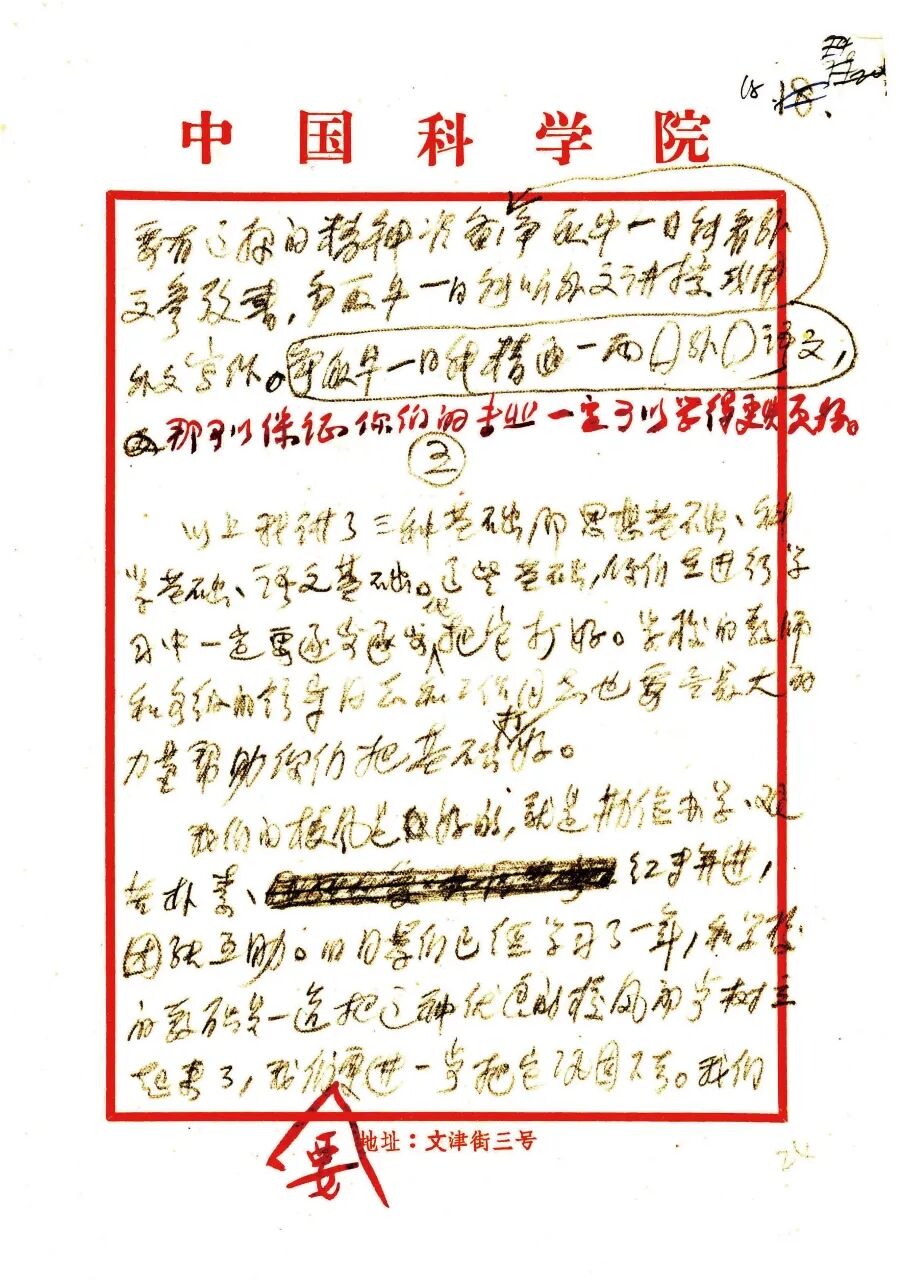 18 18.
中国科学院
要有这样的精神准备,争取早一日能看外
文参考书,争取早一日能听外文讲授或用
外文写作。争取早一日能精通一两门外门语文,
那可以保证你们的专业一定可以学得更好。
3
以上我讲了三种基础,即思想基础、科
学基础、语文基础。这些基础,你们在进行学
习中一定要逐步逐步地把它打好。学校的教师
和各级的领导同志和工作同志也要尽最大的
力量帮助你们把基础打好。
我们的校风是好的,就是勤俭办学、艰
苦朴素、红专并进,
团结互助。旧同学们已经学习了一年,和学校
的教职员一道把这种优良的校风初步树立
起来了,我们要更进一步把它巩固下去。我们
地址:文津街三号
24